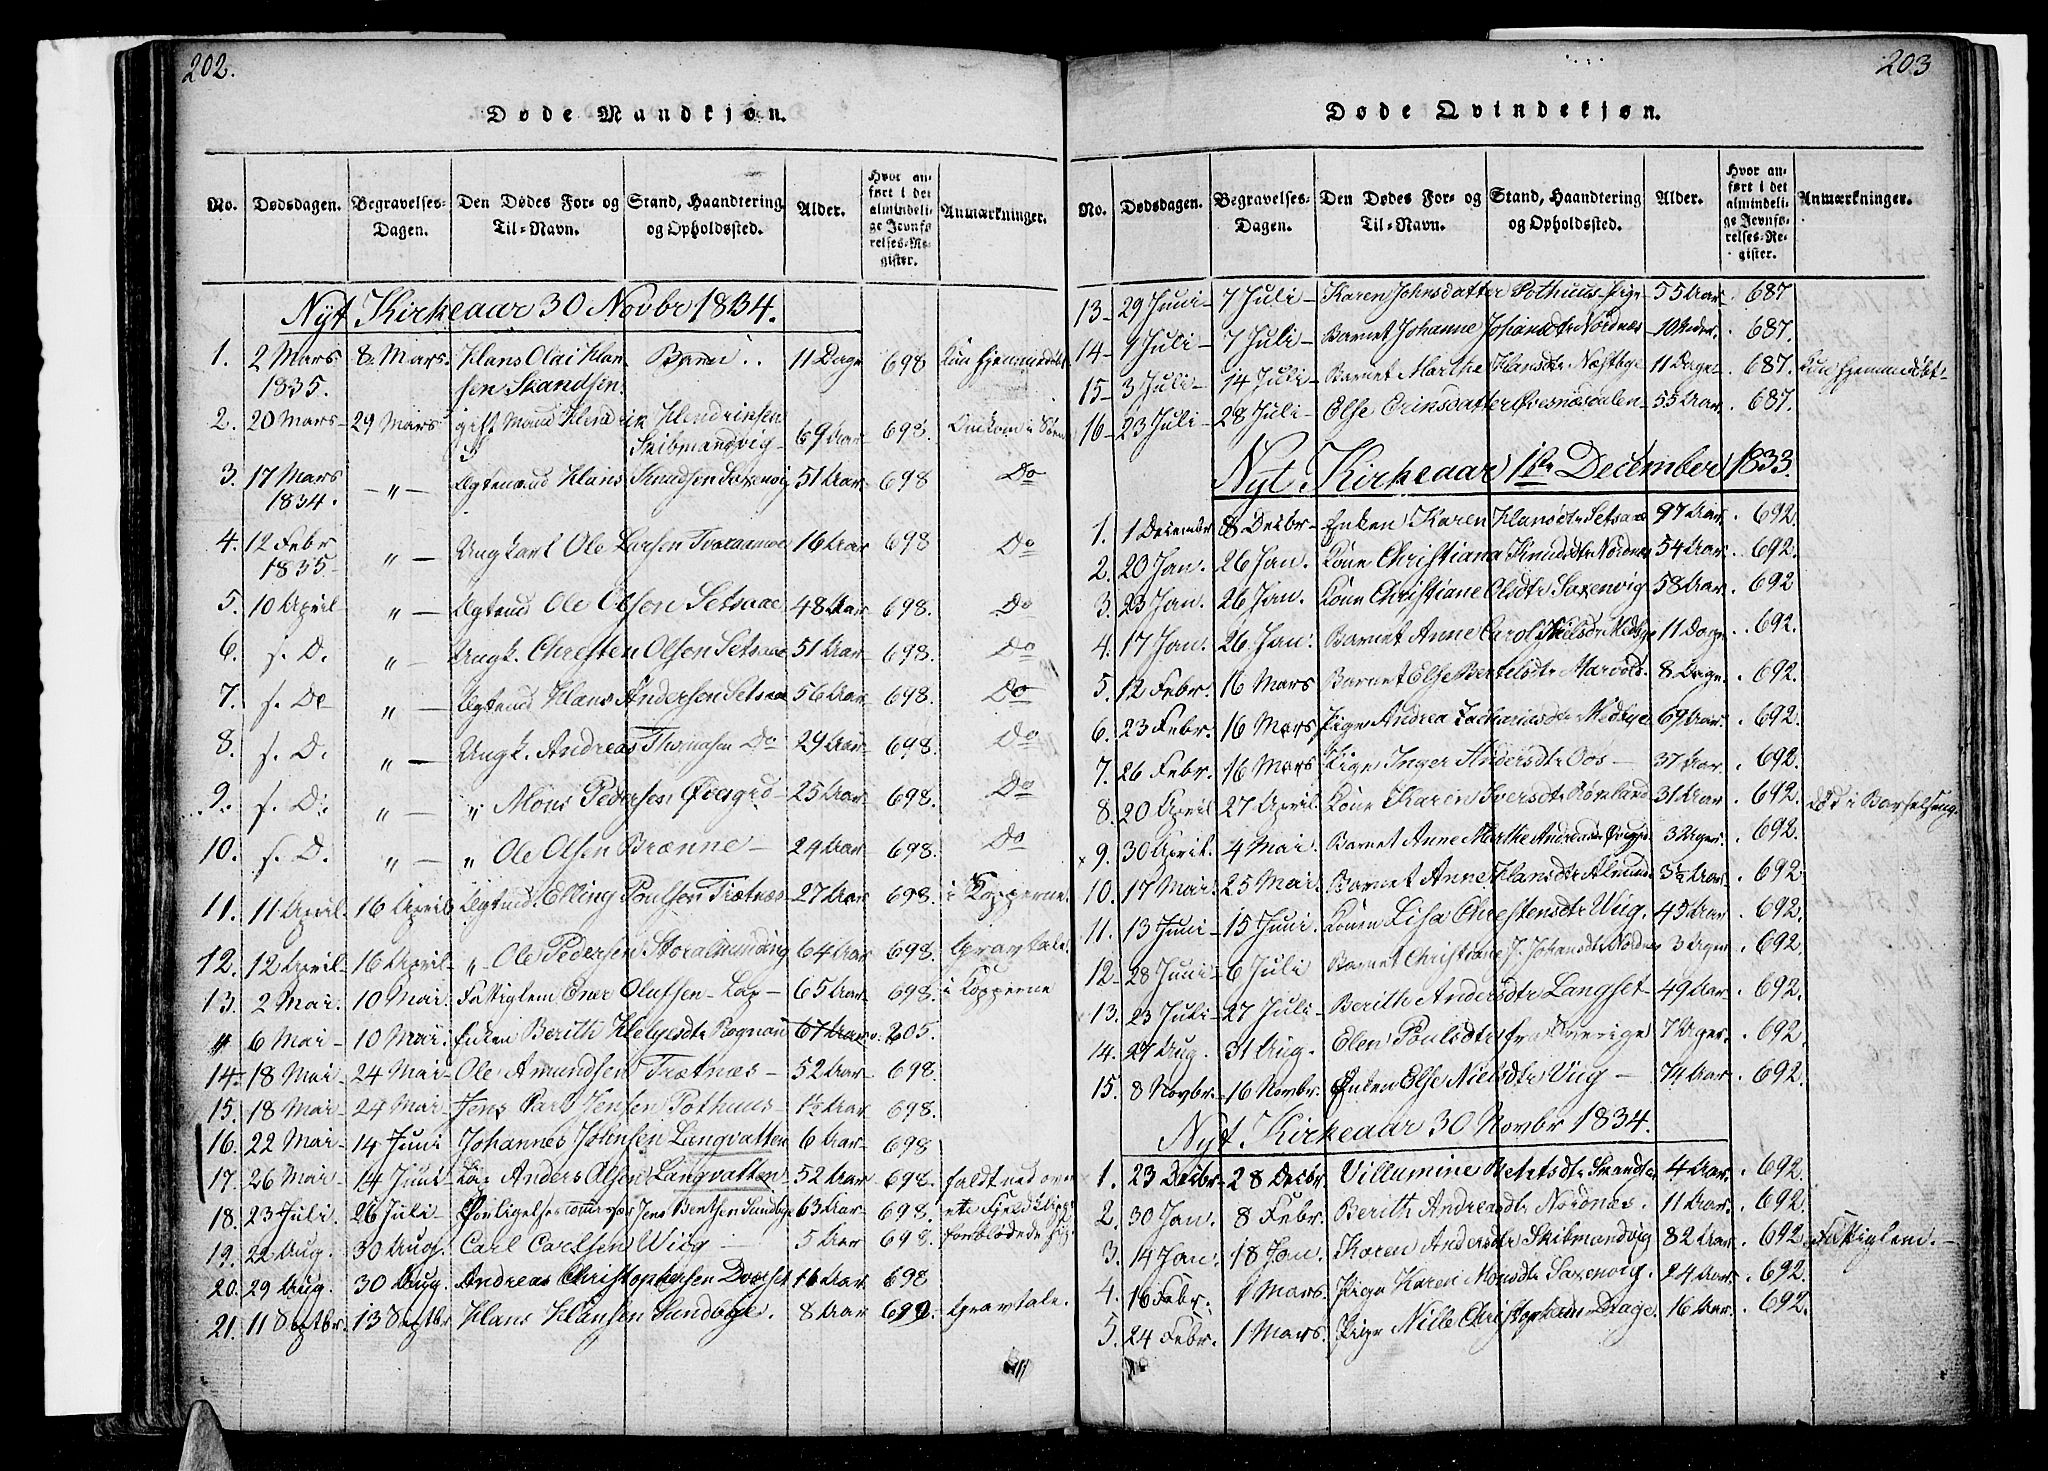 202.
Døde Mandkjøn.
No. Dødsdagen. Begravelses-Dagen. Den Dødes For- og Til-Navn. Stand, Haandtering og Opholdssted. Alder. Hvor anført i det almindelige Jevnførelses-Register. Anmærkninger.
Nyt Kirkeaar 30 Novbr 1834.
1. 2 Mars 1835. 8 Mars. Hans Olai Hansen Skandsen. Barn 11 Dage 698 Kun hjemmedøbt
2. 20 Mars 29 Mars gift Mand Hendrik Hendriksen Skibmandvig 69 Aar 698. Omkom i Søen
3. 17 Mars 1834. „ Hans Knudsen Saxenvig 51 Aar 698 Do
4. 12 Febr 1835 „ Ungkarl Ole Larsen 16 Aar 698 Do
5. 10 April „ Ole Olsen Setsaae 48 Aar 698. Do
6. s. D. „ Ungk. Christen Olsen Setsaae 51 Aar 698. Do
7. s. De „ Hans Andersen Setsaae 56 Aar 698. Do
8. s. D. „ Ungk. Andreas Thomasen Do 29 Aar 698. Do
9. s. D. „ „ Mons Pedersen 25 Aar 698. Do
10. s. D. „ „ Ole Olsen Brænne 24 Aar 698. Do
11. 11 April. 16 April Elling Poulsen Trætnæs 27 Aar 698. i Kopperne.
12. 12 April 16 April „ Ole Pedersen Storalminding 64 Aar 698. Gravtale.
13. 2 Mai. 10 Mai. Fattiglem Ener Olufsen Lap 65 Aar 698. i Kopperne
„ 6 Mai 10 Mai. Enken Berith Helgesdtr Rognan 67 Aar 205.
14. 18 Mai 24 Mai Ole Amundsen Trætnæs 52 Aar 698.
15. 18 Mai 24 Mai Jens Carl Jensen Pothuus 1½ Aar 698.
16. 22 Mai 14 Juni Johannes Johnsen Langvatten 6 Aar 698
17. 26 Mai 14 Juni Lap Anders Olsen Langvatten 52 Aar 698. faldt ned over
18. 23 Juli. 26 Juli Forligelsescommissær Jens Bentsen Sundbye 63 Aar 698. et Fjeldklipp
19. 22 Aug. 30 Aug. Carl Carlsen Wiig 5 Aar 698. forblødede sig
20. 29 Aug. 30 Aug. Andreas Christophersen Dverset 16 Aar 698
21. 11 Septbr. 13 Septbr Hans Hansen Sundbye. 8 Aar 699. Gravtale.
203
Døde Qvindekjøn.
No. Dødsdagen. Begravelses-Dagen. Den Dødes For- og Til-Navn. Stand, Haandtering og Opholdssted. Alder. Hvor anført i det almindelige Jevnførelses-Register. Anmærkninger.
13 29 Juni 7 Juli Karen Johnsdatter Pothuus Pige 55 Aar 687
14 1 Juli 7 Juli Barnet Johanne Johansdtr Nordnæs 687.
15 3 Juli 14 Juli Barnet Marthe Hansdtr Næstbye 11 Dage 687. Kun hjemmedøbt
16 23 Juli 28 Juli Else Eriksdatter Øvesnesdalen 55 Aar 687.
Nyt Kirkeaar 1ste December 1833.
1. 1 Decembr 8 Decbr Enken Karen Hansdtr Setsaae 97 Aar. 692.
2. 20 Jan. 26 Jan. Kone Christiana Knudsdtr Nordnæs 54 Aar. 692.
3. 23 Jan. 26 Jan. Kone Christiane Olsdtr Saxenvig 58 Aar 692
4. 17 Jan. 26 Jan. Barnet Anne Carol. Nielsdtr Medbye 11 Dage. 692.
5. 12 Febr. 16 Mars Barnet Else Bertelsdtr 8 Dage. 692.
6. 23 Febr. 16 Mars Pige Andrea Zachariasdtr Medbye 69 Aar. 692.
7. 26 Febr. 16 Mars Pige Inger Andersdtr Oos 37 Aar. 692.
8. 20 April 27 April. Kone Karen Iversdtr Røkland 31 Aar. 692. død i Barselseng.
9. 30 April. 4 Mai. Barnet Anne Marthe Andreasdtr 3 Uger. 692.
10. 17 Mai. 25 Mai. Barnet Anne Hansdtr 3½ Aar. 692.
11. 13 Juni 15 Juni. Konen Lisa Christensdtr Wiig. 45 Aar 692.
12 28 Juni 6 Juli Barnet Christiane J. Johansdtr Nordnæs 3 Uger 692
13. 23 Juli 27 Juli Berith Andersdtr Langset 49 Aar. 692.
14. 27 Aug. 31 Aug. Elen Poulsdtr fra Sverige 7 Uger. 692
15. 8 Novbr. 16 Novbr. Enken Else Nielsdtr Viig 74 Aar. 692.
Nyt Kirkeaar 30 Novbr 1834.
1. 23 Decbr 28 Decbr. Villumine 4 Aar. 692.
2. 30 Jan. 8 Febr. Berith Andreasdtr Nordnæs. 11 Aar. 692.
3. 14 Jan. 18 Jan. Karen Andersdtr Skibmandvig 82 Aar. 692 Fattiglem.
4. 16 Febr. 1 Mars. Pige Karen Monsdtr Saxenvig. 24 Aar. 692.
5. 24 Febr. 1 Mars. Pige Nille 16 Aar. 692.